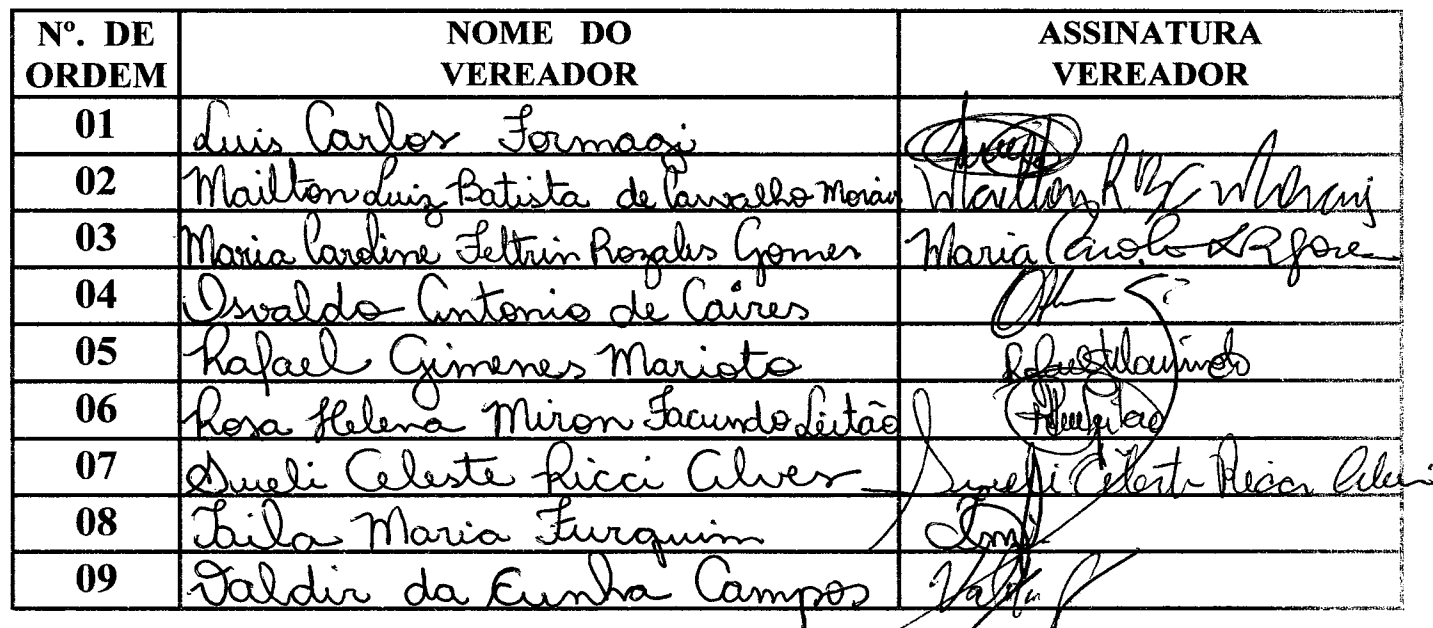 Nº. DE ORDEM NOME DO VEREADOR ASSINATURA VEREADOR
01 Luis Carlos Formagi
02 Mailton Luiz Batista de Carvalho Morais
03 Maria Caroline Feltrin Rozalis Gomes Maria
04 Osvaldo Antonio de Caires
05 Rafael Gimenes Marioto
06 Rosa Helena Miron Facundo Leitão
07 Sueli Celeste Ricci Alves Sueli Celeste Ricci Alves
08 Taila Maria Furquim
09 Valdir da Cunha Campos